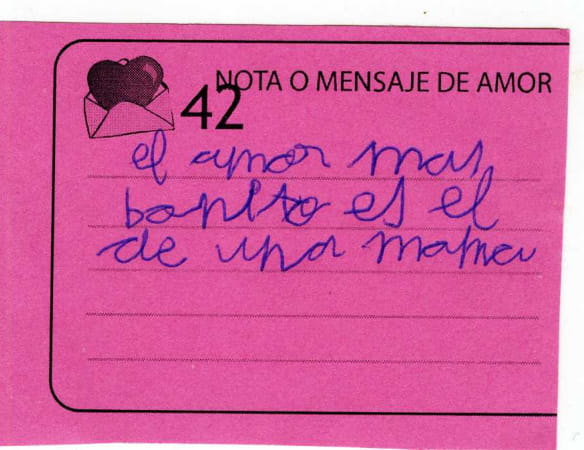 NOTA O MENSAJE DE AMOR
42
el amor mas
bonito es el
de una mama